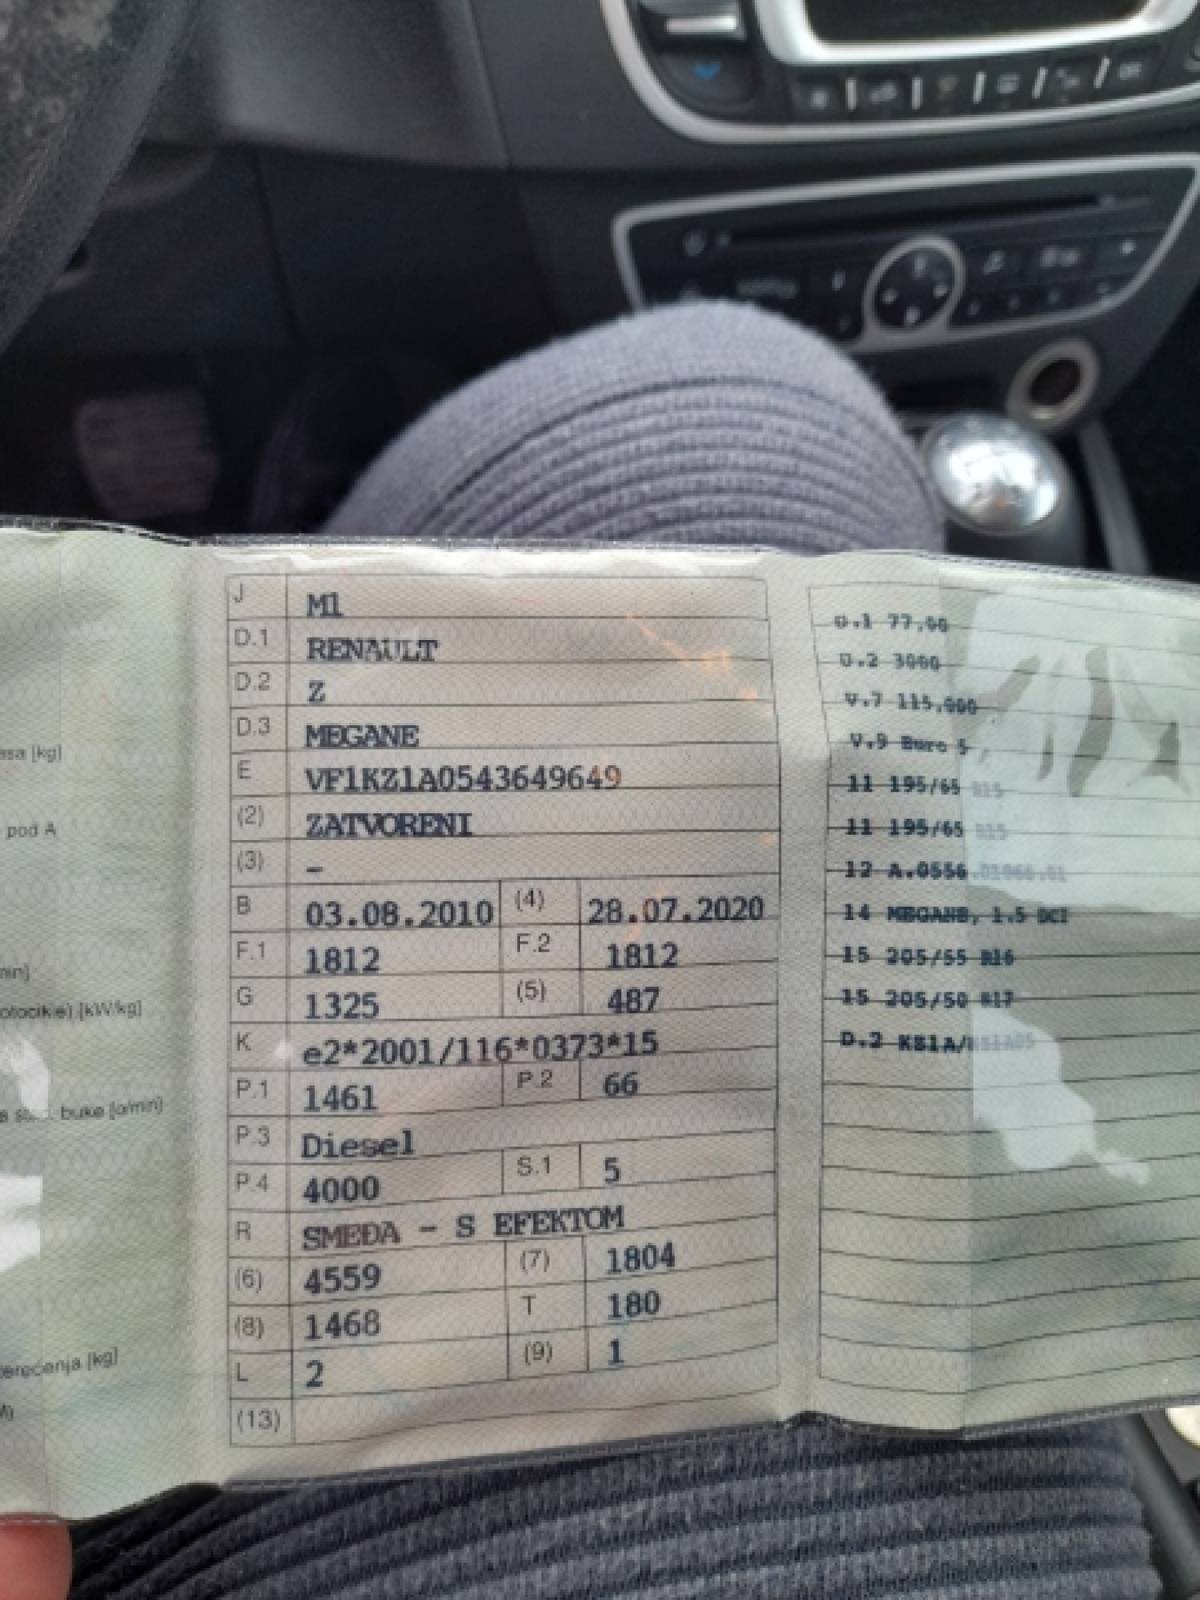 asa [kg]
pod A
min]
[kW/kg]
buke [o/min]
[kg]
J M1
D.1 RENAULT
D.2 Z
D.3 MEGANE
E VF1KZ1A0543649649
(2) ZATVORENI
(3) -
B 03.08.2010 (4) 28.07.2020
F.1 1812 F.2 1812
G 1325 (5) 487
K e2*2001/116*0373*15
P.1 1461 P.2 66
P.3 Diesel
P.4 4000 S.1 5
R SMEĐA - S EFEKTOM
(6) 4559 (7) 1804
(8) 1468 T 180
L 2 (9) 1
(13)
U.1 77,00
U.2 3000
V.7 115,000
V.9 Euro 5
11 195/65 R15
11 195/65 R15
12 A.0556
14 MEGANE, 1.5 DCI
15 205/55 R16
15 205/50 R17
D.2 KS1A/